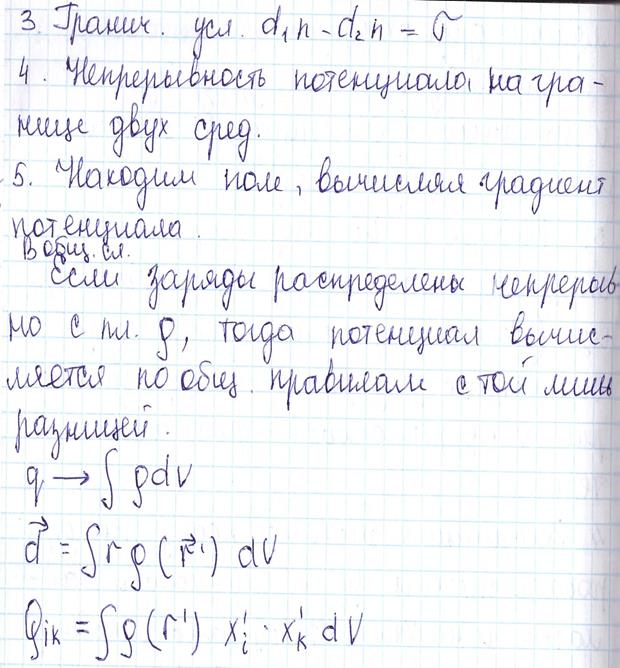 3. Гранич. усл. d₁n - d₂n = σ
4. Непрерывность потенциала на гра-
нице двух сред.
5. Находим поле, вычисляя градиент
потенциала.
В общ. сл.
Если заряды распределены непрерыв
но с пл. ρ, тогда потенциал вычис-
ляется по общ. правилам с той лишь
разницей.
q → ∫ ρdV
d⃗ = ∫ r ρ (r⃗') dV
Qik = ∫ ρ (r') x'i · x'k dV